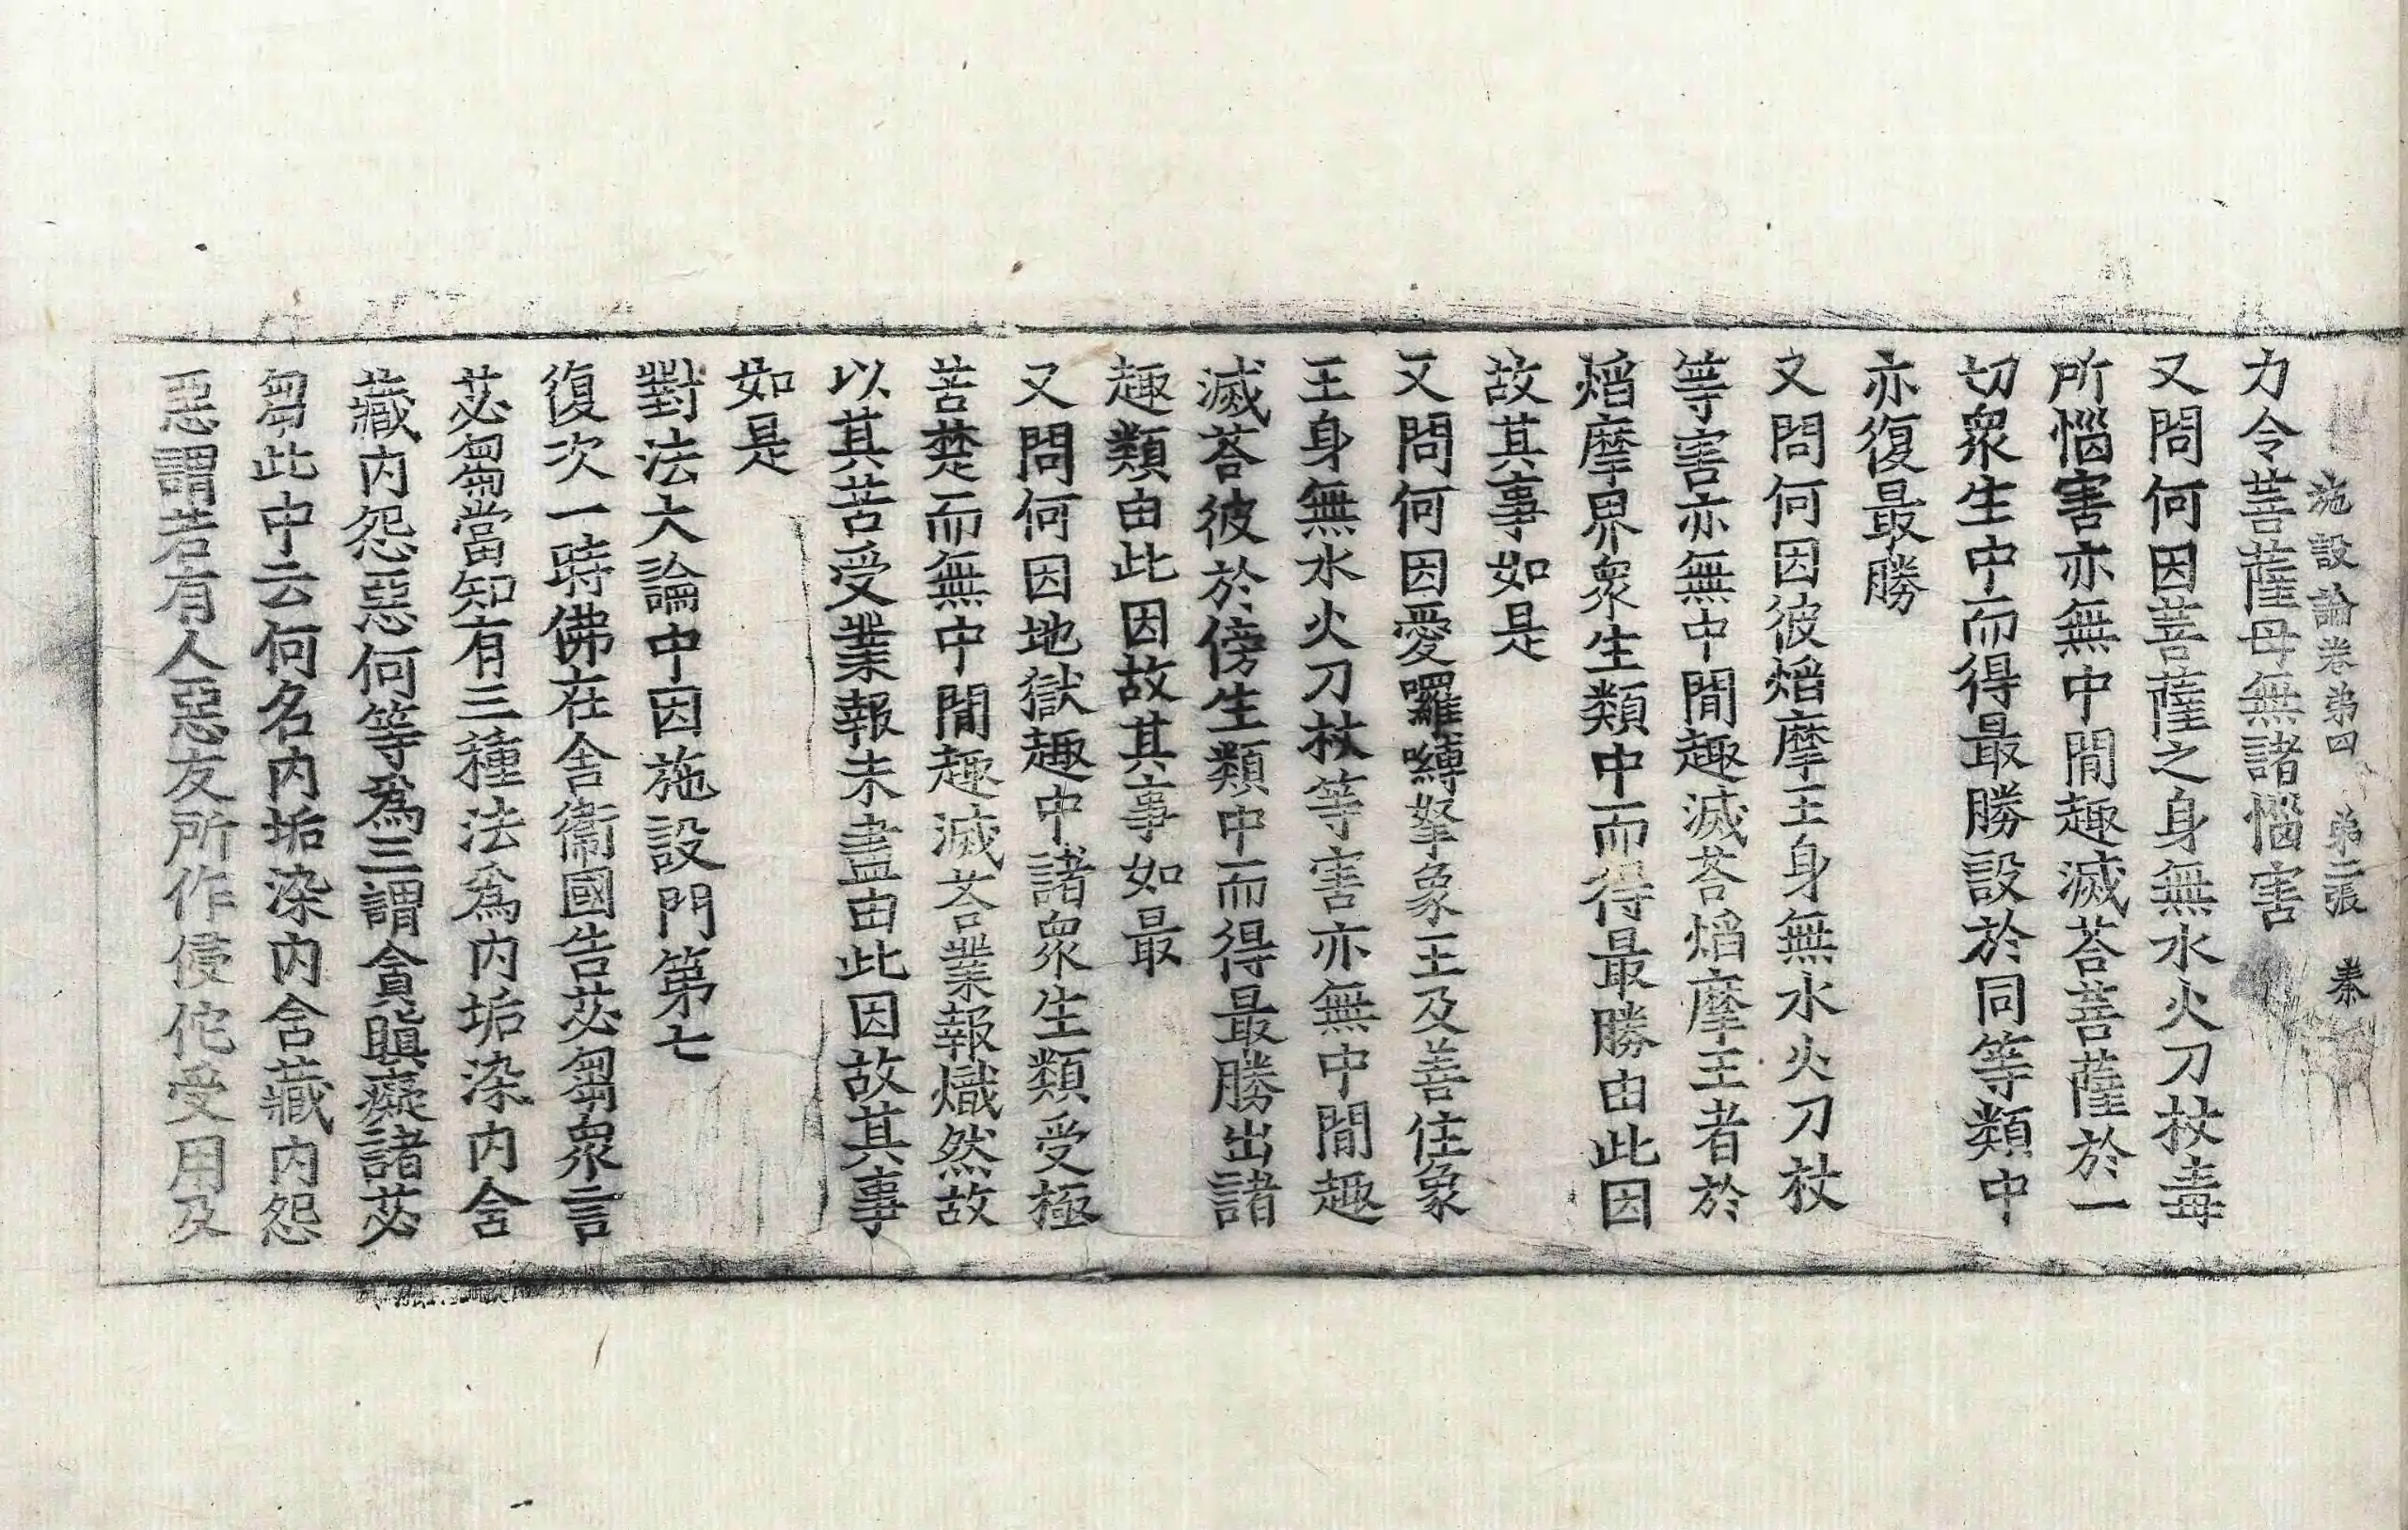 施設論卷第四 第二張 秦
力令菩薩母無諸惱害
又問何因菩薩之身無水火刀杖毒
所惱害亦無中閒趣滅荅菩薩於一
切衆生中而得最勝設於同等類中
亦復最勝
又問何因彼熖摩王身無水火刀杖
等害亦無中閒趣滅荅熖摩王者於
熖摩界衆生類中而得最勝由此因
故其事如是
又問何因愛囉嚩拏象王及善住象
王身無水火刀杖等害亦無中閒趣
滅荅彼於傍生類中而得最勝出諸
趣類由此因故其事如最
又問何因地獄趣中諸衆生類受極
苦楚而無中閒趣滅荅業報熾然故
以其苦受業報未盡由此因故其事
如是
對法大論中因施設門第七
復次一時佛在舎衞國告苾芻衆言
苾芻當知有三種法爲內垢染內含
藏內怨惡何等爲三謂貪瞋癡諸苾
芻此中云何名內垢染內含藏內怨
惡謂若有人惡友所作侵佗受用及